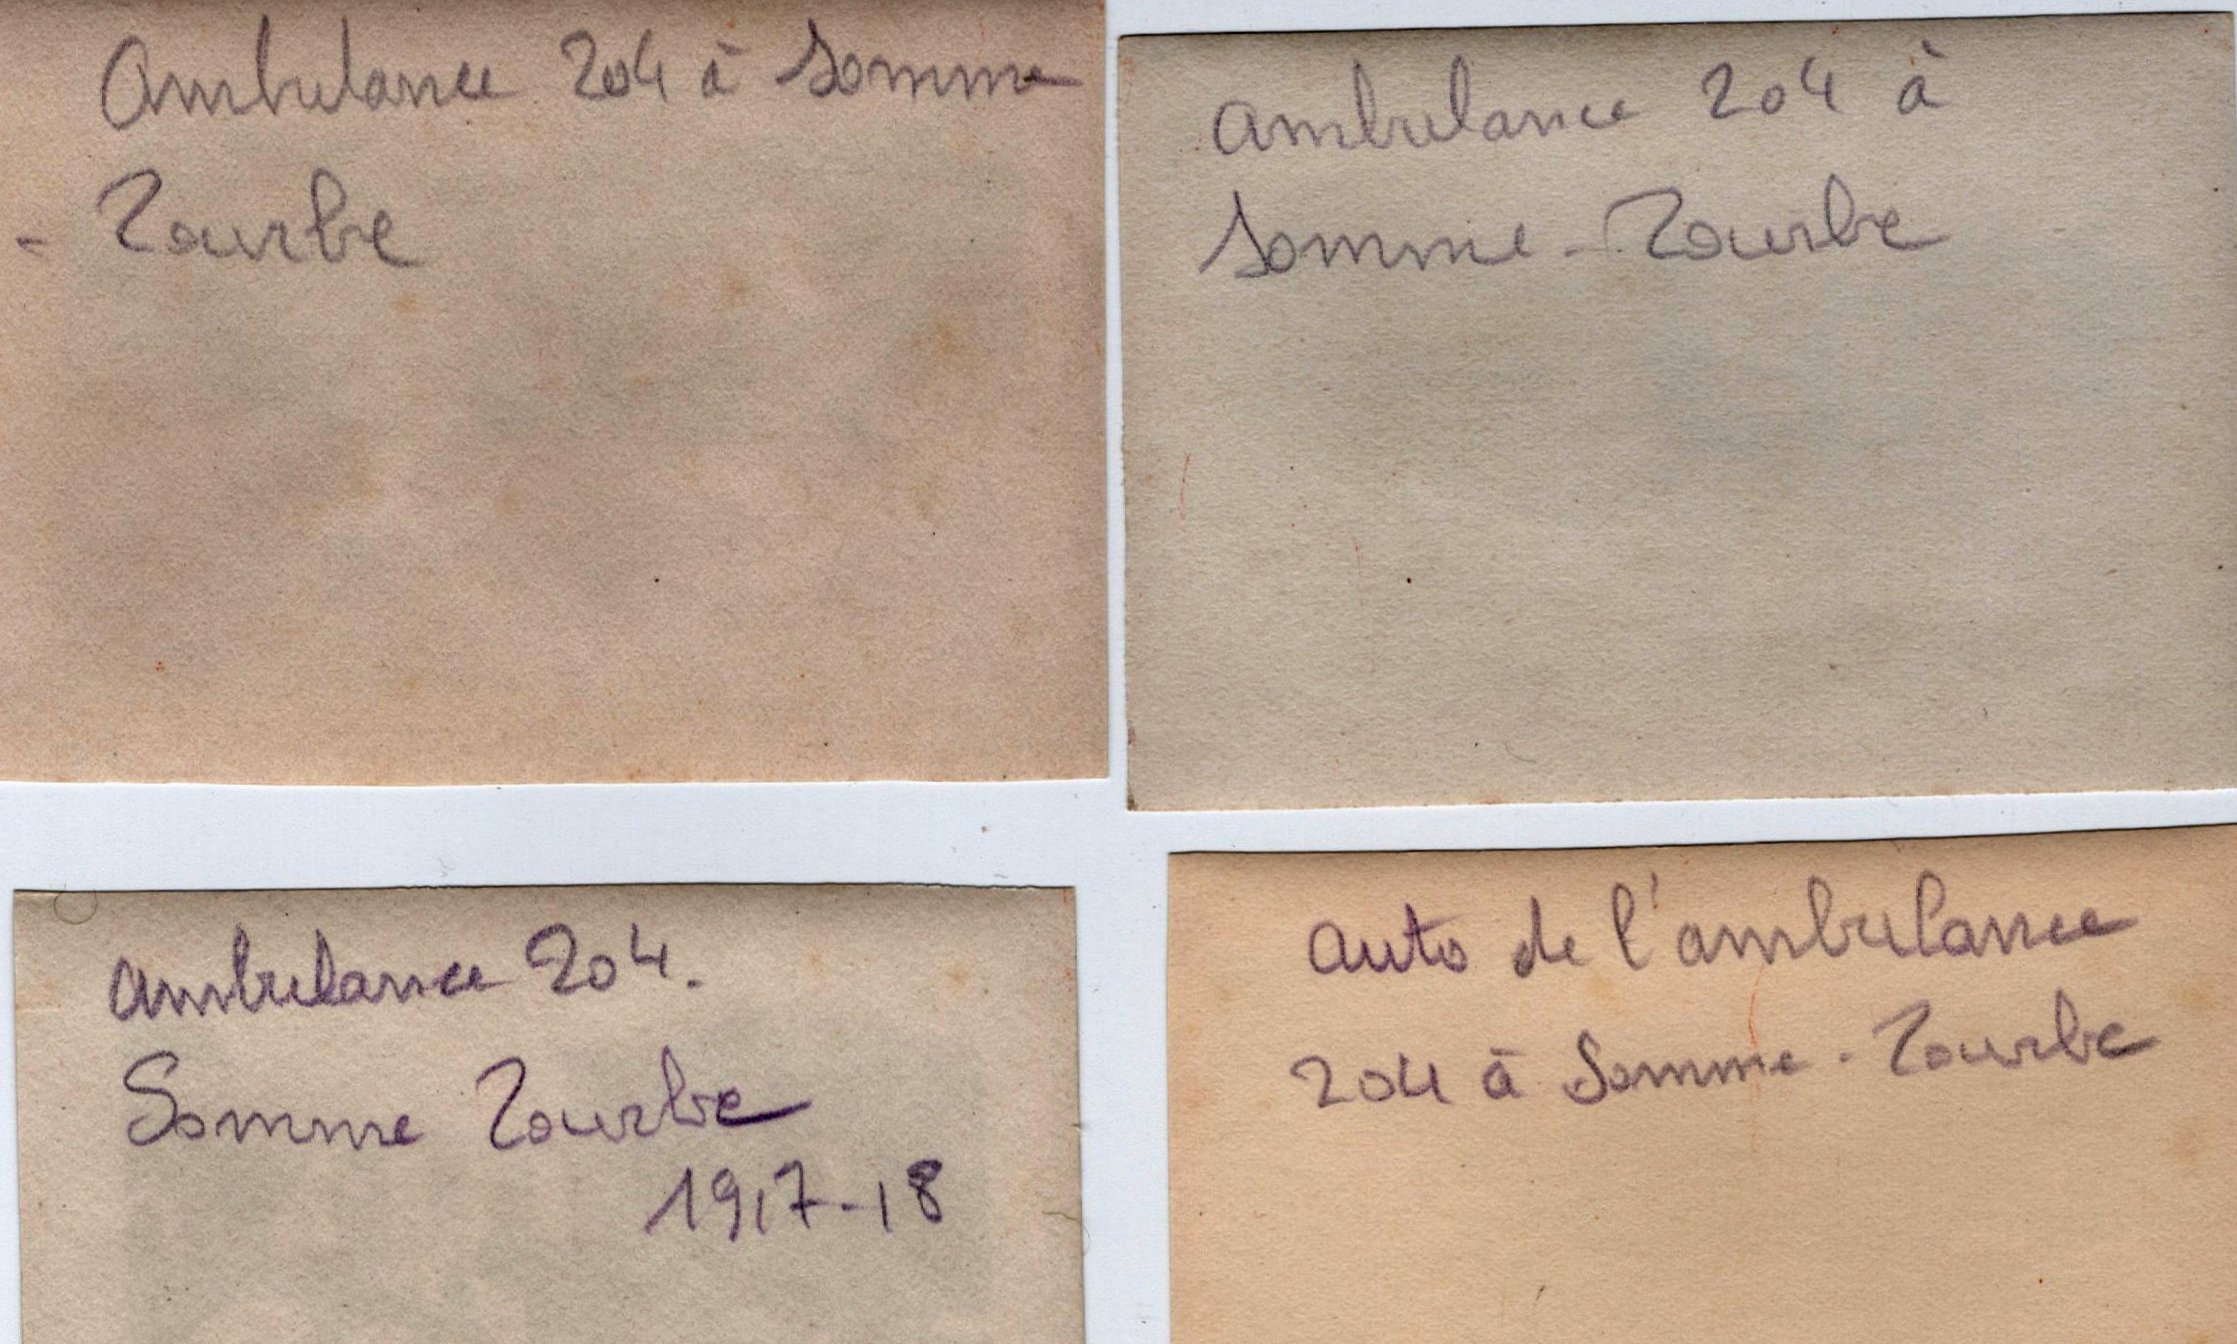 Ambulance 204 à Somme
- Tourbe
ambulance 204 à
Somme - Tourbe
ambulance 204.
Somme Tourbe
1917-18
auto de l'ambulance
204 à Somme - Tourbe